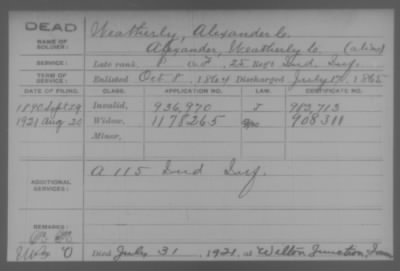 DEAD
NAME OF SOLDIER:
Weatherly, Alexander C.
Alexander, Weatherly C. (alias)
SERVICE: Late rank, P Co. F, 25 Reg't Ind. Inf.
TERM OF SERVICE: Enlisted Oct 8, 1864 Discharged July 17, 1865
DATE OF FILING. CLASS. APPLICATION NO. LAW. CERTIFICATE NO.
1890 Sept 29 Invalid, 936,970 J 912,713
1921 Aug 20 Widow, 1178265 908311
Minor,
ADDITIONAL SERVICES: A 115 Ind Inf.
REMARKS:
Died July 31, 1921, at Wilton Junction, Iowa